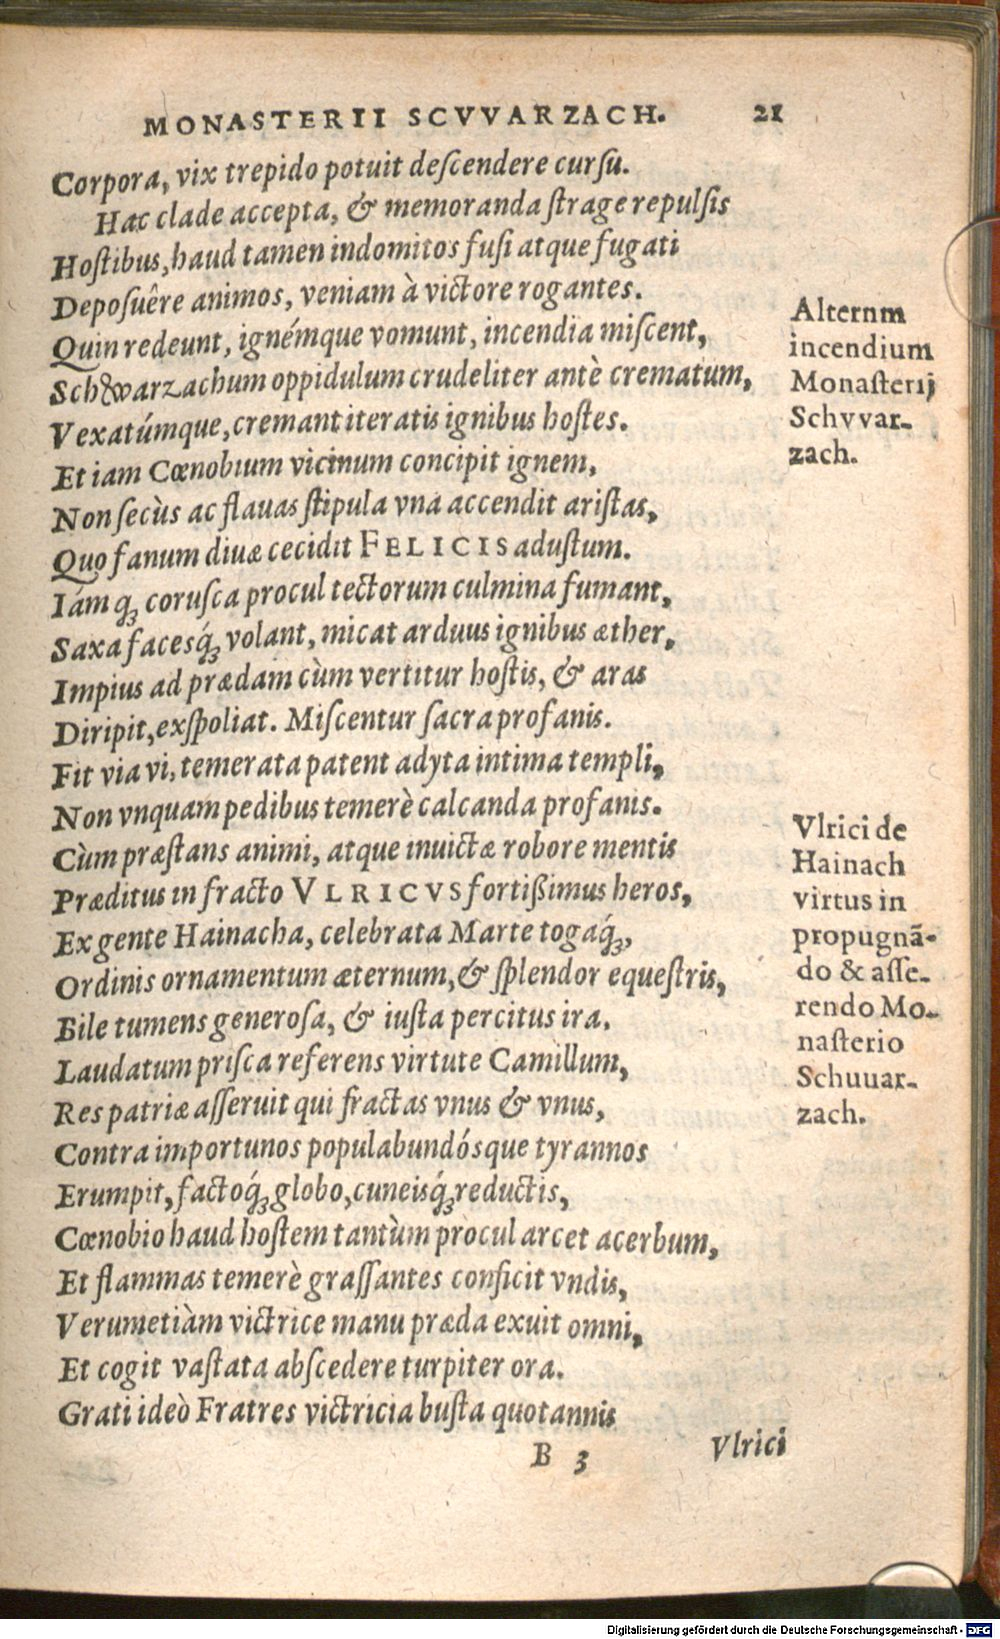 MONASTERII SCVVARZACH. 21
Corpora, vix trepido potuit deſcendere curſu.
Hac clade accepta, & memoranda ſtrage repulſis
Hoſtibus, haud tamen indomitos fuſi atque fugati
Depoſuêre animos, veniam à victore rogantes.
Quin redeunt, ignémque vomunt, incendia miſcent,
Schwarzachum oppidulum crudeliter antè crematum,
Vexatúmque, cremant iteratis ignibus hoſtes.
Et iam Cœnobium vicinum concipit ignem,
Non ſecùs ac flavas ſtipula vna accendit ariſtas,
Quo fanum divæ cecidit FELICIS aduſtum.
Iámq́ꝫ coruſca procul tectorum culmina fumant,
Saxa faceſq́ꝫ volant, micat arduus ignibus æther,
Impius ad prædam cùm vertitur hoſtis, & aras
Diripit, exſpoliat. Miſcentur ſacra profanis.
Fit via vi, temerata patent adyta intima templi,
Non vnquam pedibus temerè calcanda profanis.
Cùm præſtans animi, atque inuictæ robore mentis
Præditus infracto VLRICVS fortißimus heros,
Ex gente Hainacha, celebrata Marte togaq́ꝫ,
Ordinis ornamentum æternum, & ſplendor equeſtris,
Bile tumens generoſa, & iuſta percitus ira.
Laudatum priſca referens virtute Camillum,
Res patriæ aſſeruit qui fractas vnus & vnus,
Contra importunos populabundósque tyrannos
Erumpit, factoq́ꝫ globo, cuneisq́ꝫ reductis,
Cœnobio haud hoſtem tantùm procul arcet acerbum,
Et flammas temerè graſſantes conficit vndis,
Verumetiàm victrice manu præda exuit omni,
Et cogit vaſtata abſcedere turpiter ora.
Grati ideò Fratres victricia buſta quotannis
B 3 Vlrici
Alternm
incendium
Monaſterij
Schvvar-
zach.
Vlrici de
Hainach
virtus in
propugnã-
do & aſſe-
rendo Mo-
naſterio
Schuuar-
zach.
Digitalisierung gefördert durch die Deutsche Forschungsgemeinschaft - DFG